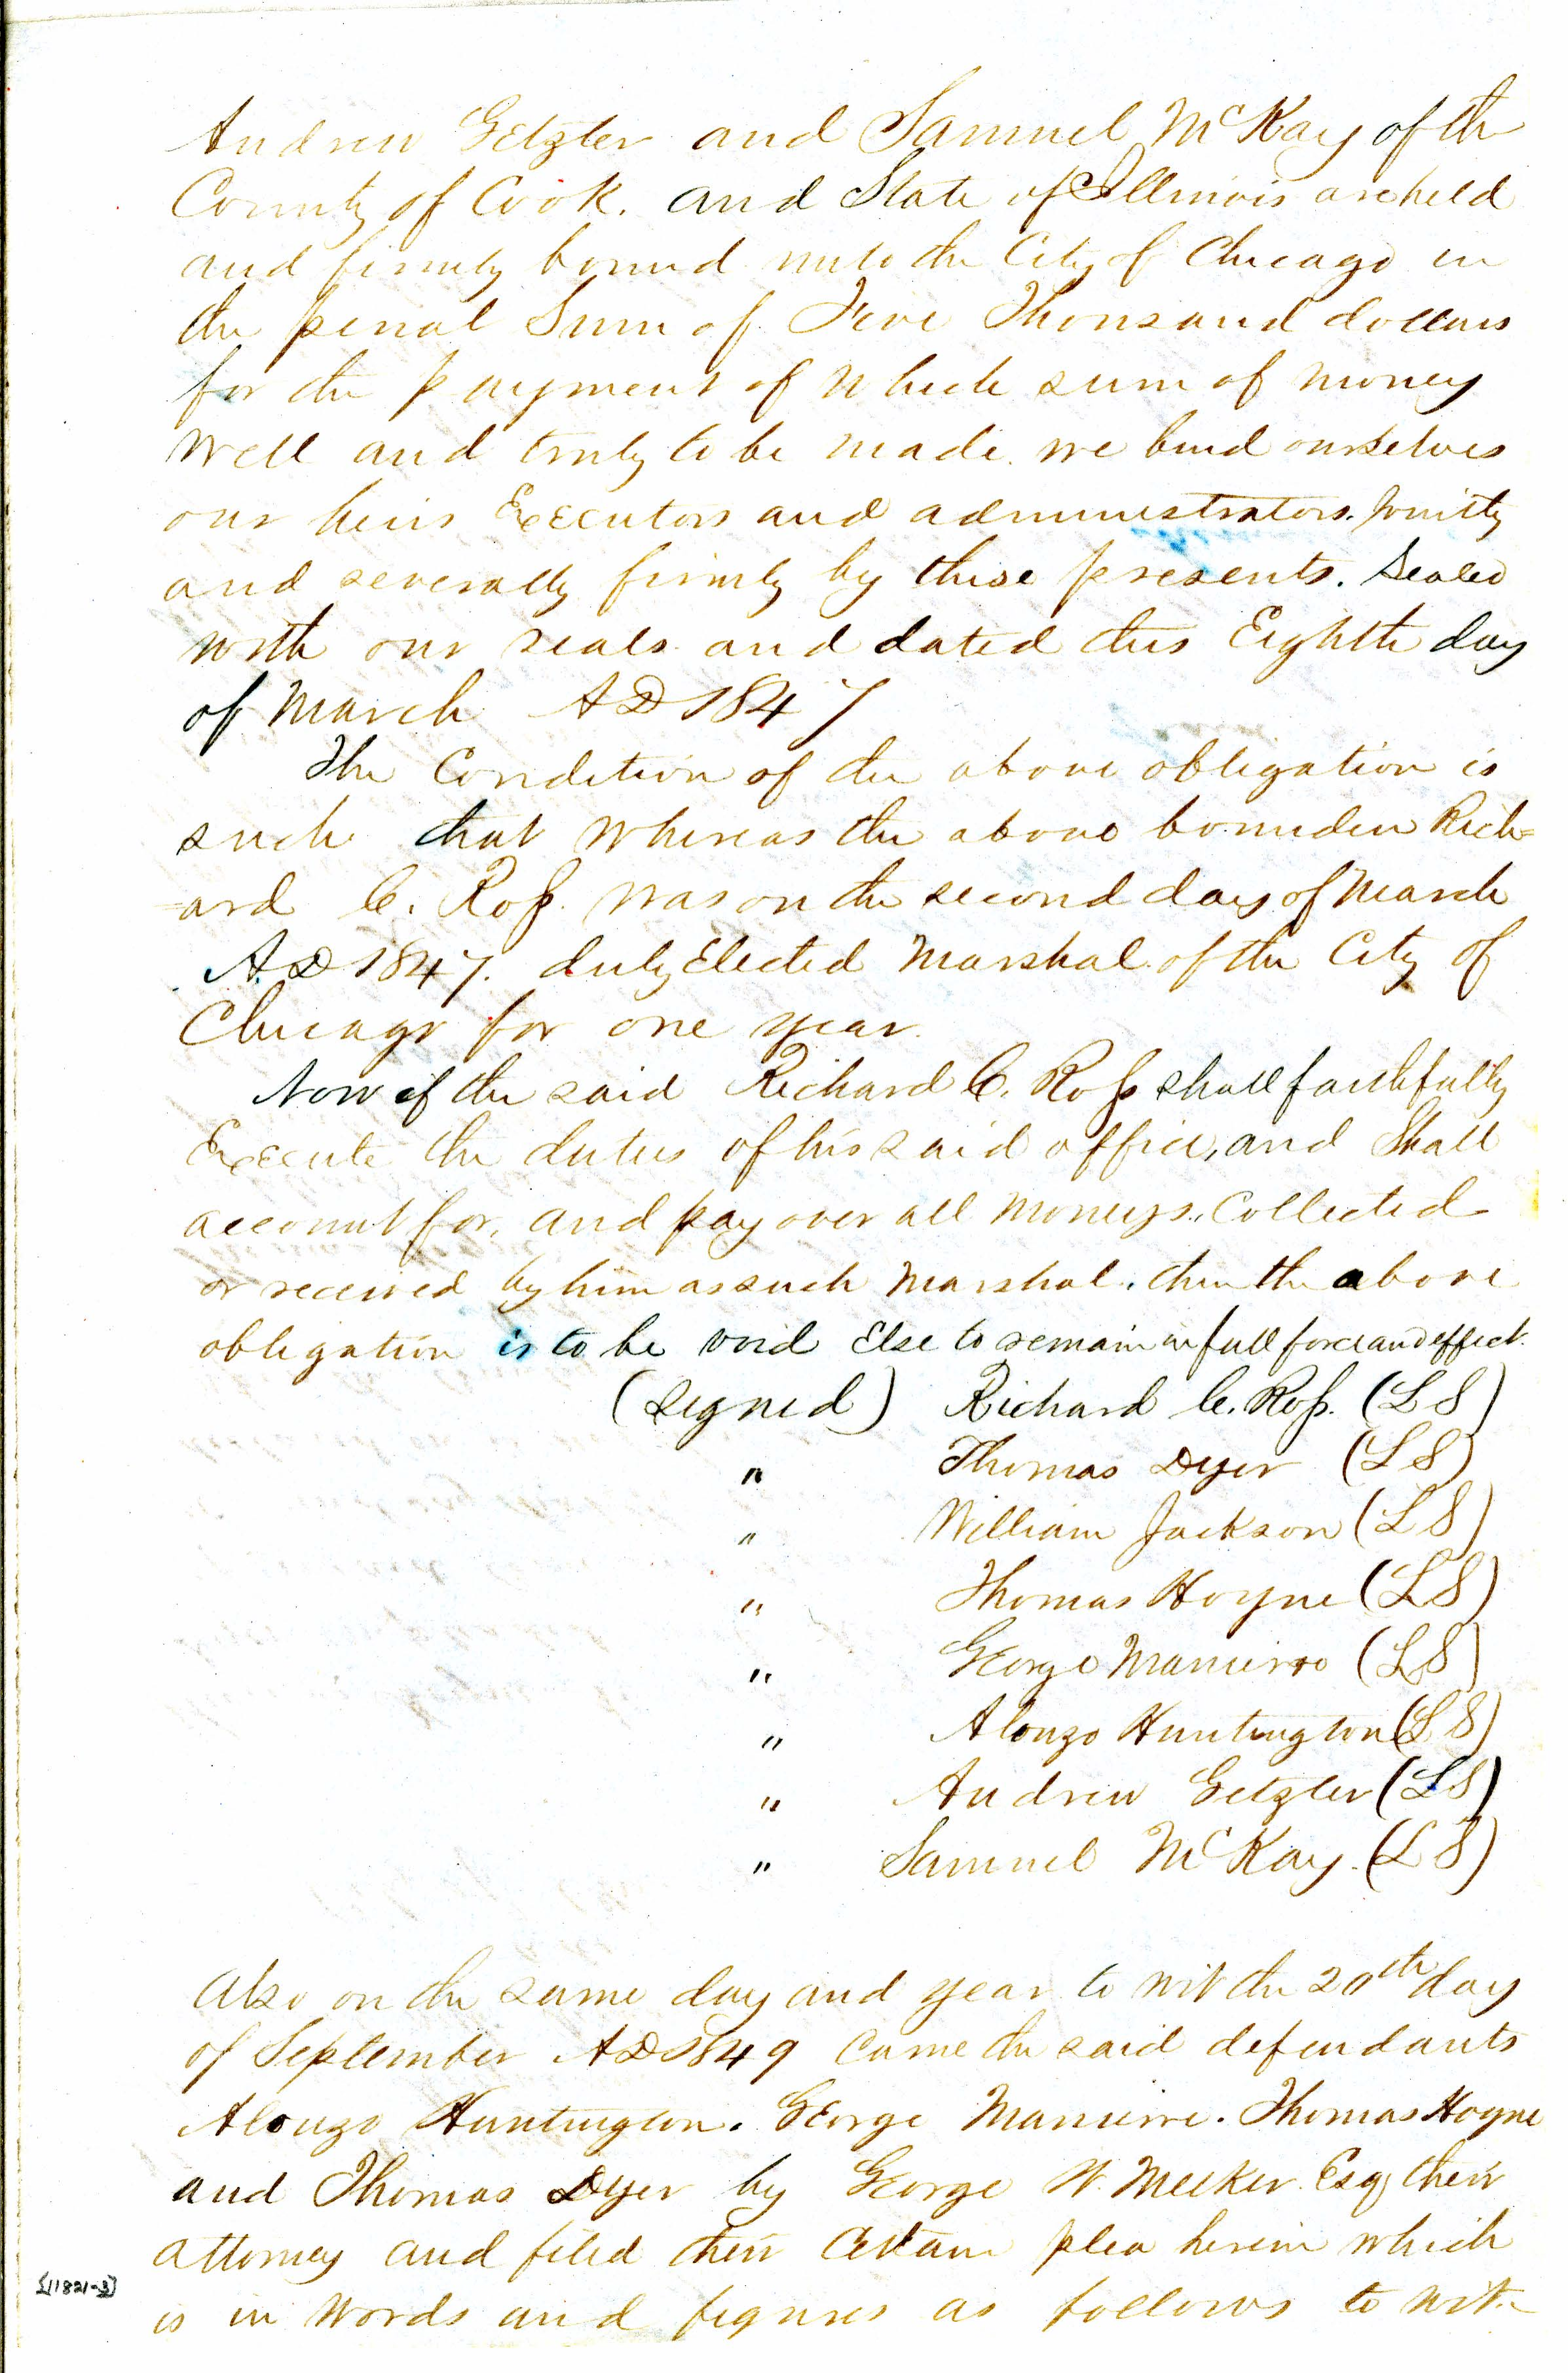 Andrew Getzler and Samuel McKay of the
County of Cook. and State of Illinois are held
and firmly bound unto the City of Chicago in
the penal Sum of Five Thousand dollars
for the payment of which sum of money
well and truly to be made we bind ourselves
our heirs Executors and administrators. Jointly
and severally firmly by these presents. Sealed
with our seals and dated this Eighth day
of March AD 1847
The Condition of the above obligation is
such that whereas the above bounden Rich=
=ard C. Ross. was on the second day of March
A.D 1847. duly Elected Marshal of the City of
Chicago for one year.
Now if the said Richard C. Ross shall faithfully
Execute the duties of his said office, and Shall
account for, and pay over all moneys, Collected
or received by him as such Marshal. then the above
obligation is to be void Else to remain in full force and effect.
(signed) Richard C. Ross. (L S)
" Thomas Dyer (L S)
" William Jackson (L S)
" Thomas Hoyne (L S)
" George Manierre (L S)
" Alonzo Huntington (L S)
" Andrew Getzler (L S)
" Samuel McKay. (L S)
Also on the same day and year to wit the 20th day
of September AD 1849 came the said defendants
Alonzo Huntington. George Manierre. Thomas Hoyne
and Thomas Dyer by George W. Meeker Esq their
attorney and filed their certain plea herein which
is in words and figures as follows to wit.
[11821-3]